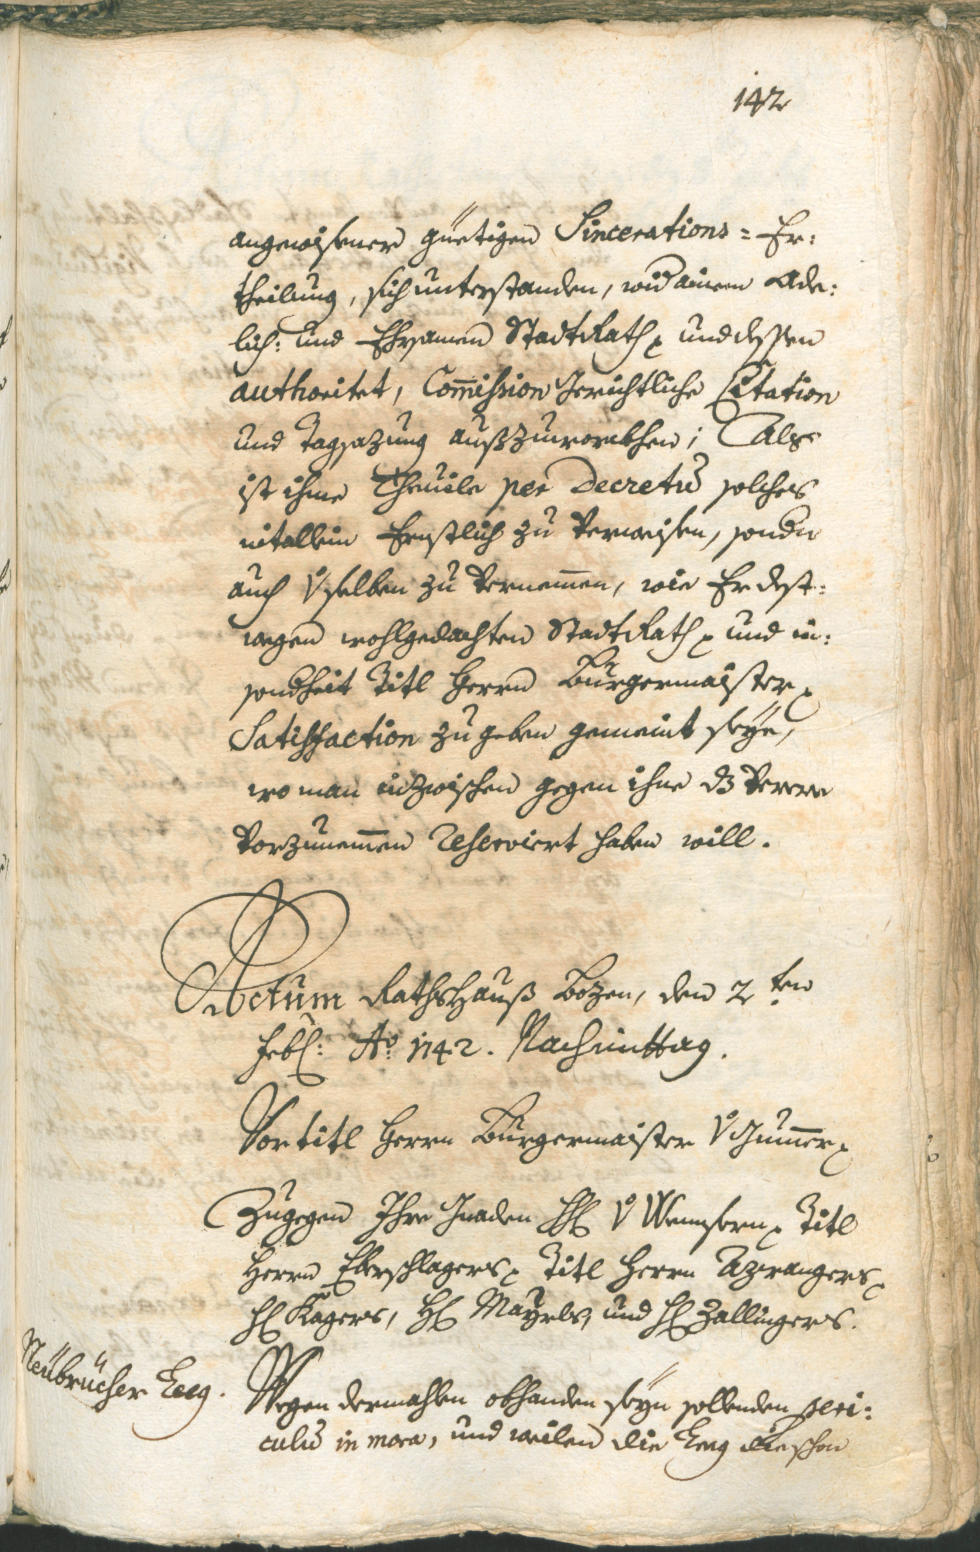 142
angewisener güetigen Sincerations=Er:
theilung, sich unterstanden, wid ainem Ade:
lich: und Ehrsamen StadtRath und dessen
authoritet, Com̄ission Gerichtliche Citation
und Tagsazung außzuwürkhen; Alß
ist ihme Theüile per Decretū solches
nit allein Ernstlich zu Verweisen, sondn
auch Vselben zu Vernem̄en, wie Er dest:
wegen wohlgedachten StadtRath und in:
sondheit Titl Herrn Bürgermaister
Satisfaction zu geben gemeint seye,
wo man inzwischen gegen ihne dz
Vorzunem̄en Reserviert haben will.
Actum RathsHauß Bozen, den 2ten
Febr: Ao: 1742. Nachmittag.
Vor titl Herrn Bürgermaister V Gum̄er
Zugegen Ihro Gnaden H V Wenseren Titl
Herrn Eberschlagers Titl Herrn Azwangers
H Kagers, H Mayrls, und H Zallingers.
Neübrücher Eeg.
Wegen dermahlen obhanden seyn sollenden peri:
culū in mora, und weilen die Eeg die schon